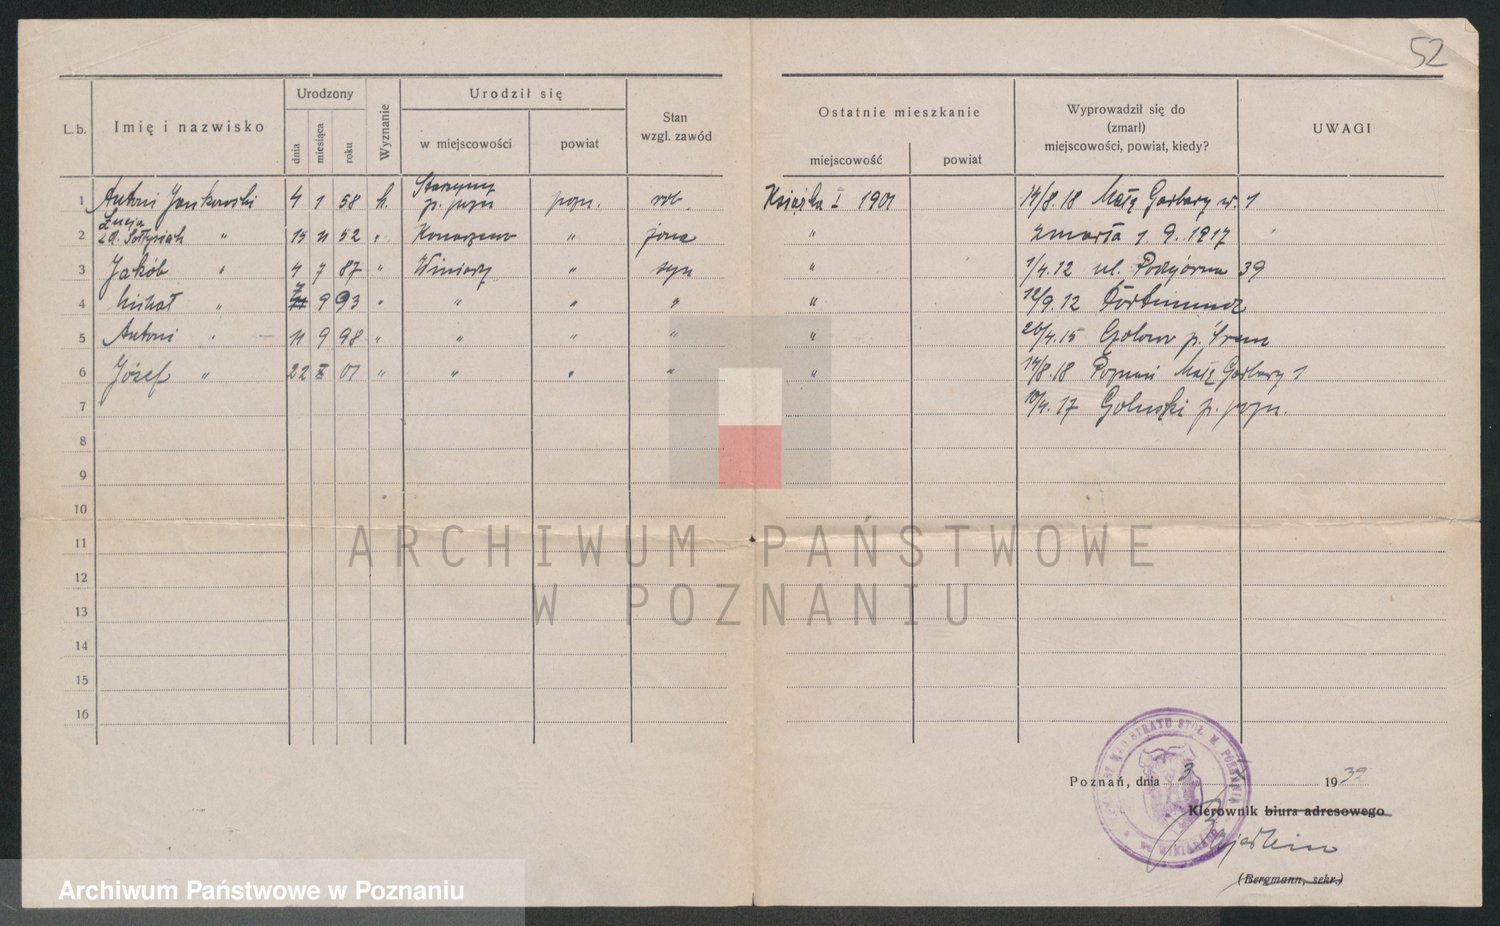 52
L. b.
Imię i nazwisko
Urodzony
dnia
miesiąca
roku
Wyznanie
Urodził się
w miejscowości
powiat
Stan
wzgl. zawód
Ostatnie mieszkanie
miejscowość
powiat
Wyprowadził się do
(zmarł)
miejscowości, powiat, kiedy?
UWAGI
1 Antoni Jankowski 4 1 58 k. pozn. rob. Książka I 1901 14/8.18 Małe Garbary nr. 1
Łucja
2 zd. Sołtysiak " 15 11 52 " Konarzewo " żona " zmarła 1. 9. 1917
3 Jakób " 4 7 87 " Winiary " syn " 1/4.12 ul. Podgórna 39
4 Michał " 9 93 " " " " " 12/9.12 Dortmund
5 Antoni " 11 9 98 " " " " " 20/4.15 p. Śrem
6 Józef " 22 I 01 " " " " " 14/8.18 Poznań Małe Garbary 1
7 10/4.17 Golęski p. pozn.
8
9
10
11
12
13
14
15
16
ARCHIWUM PAŃSTWOWE
W POZNANIU
MAGISTRATU STOŁ. M. POZNANIA
WINIARACH
Poznań, dnia 3 1932
Kierownik biura adresowego
(Bergmann, sekr.)
Archiwum Państwowe w Poznaniu